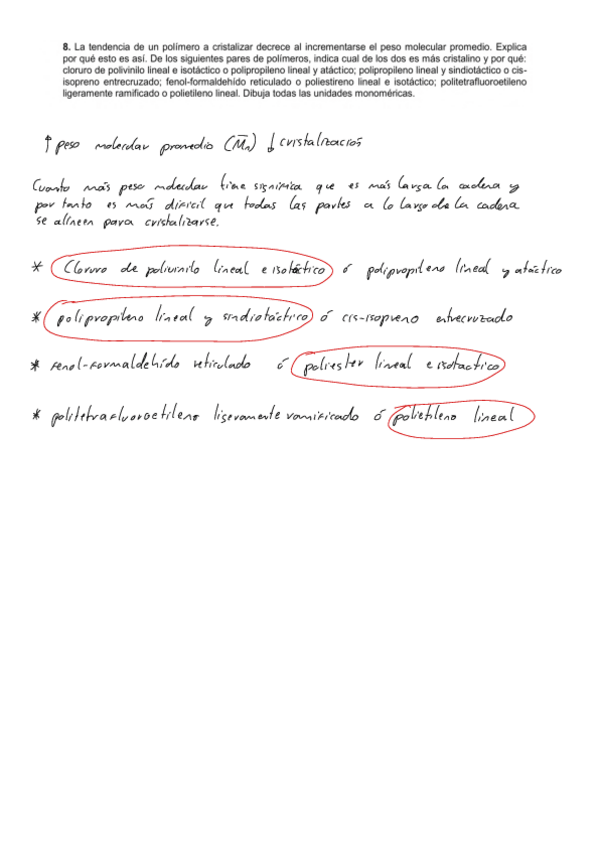 8. La tendencia de un polímero a cristalizar decrece al incrementarse el peso molecular promedio. Explica
por qué esto es así. De los siguientes pares de polímeros, indica cual de los dos es más cristalino y por qué:
cloruro de polivinilo lineal e isotáctico o polipropileno lineal y atáctico; polipropileno lineal y sindiotáctico o cis-
isopreno entrecruzado; fenol-formaldehído reticulado o poliestireno lineal e isotáctico; politetrafluoroetileno
ligeramente ramificado o polietileno lineal. Dibuja todas las unidades monoméricas.
↑ peso molecular promedio (M̄n) ↓ cristalización
Cuanto más peso molecular tiene significa que es más larga la cadena y
por tanto es más difícil que todas las partes a lo largo de la cadena
se alineen para cristalizarse.
* Cloruro de polivinilo lineal e isotáctico ó polipropileno lineal y atáctico
* polipropileno lineal y sindiotáctico ó cis-isopreno entrecruzado
* fenol-formaldehído reticulado ó poliester lineal e isotactico
* politetrafluoroetileno ligeramente ramificado ó polietileno lineal